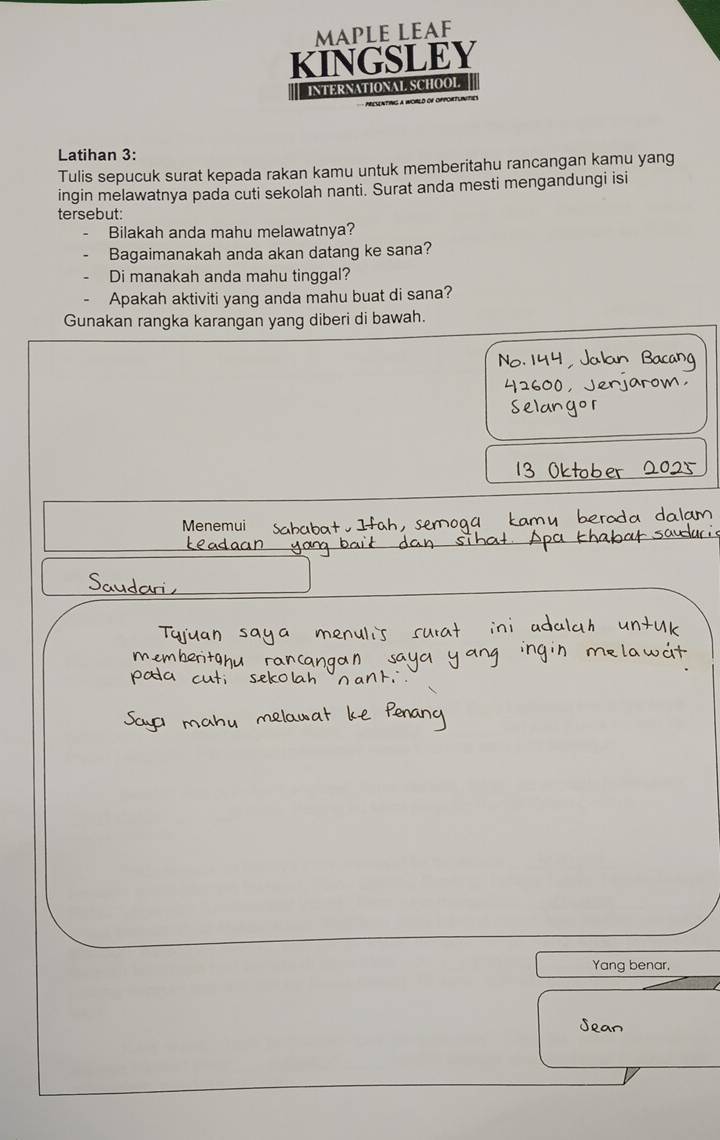 MAPLE LEAF
KINGSLEY
INTERNATIONAL SCHOOL
PRESENTING A WORLD OF OPPORTUNITIES
Latihan 3:
Tulis sepucuk surat kepada rakan kamu untuk memberitahu rancangan kamu yang
ingin melawatnya pada cuti sekolah nanti. Surat anda mesti mengandungi isi
tersebut:
- Bilakah anda mahu melawatnya?
- Bagaimanakah anda akan datang ke sana?
- Di manakah anda mahu tinggal?
- Apakah aktiviti yang anda mahu buat di sana?
Gunakan rangka karangan yang diberi di bawah.
No. 144, Jalan Bacang
42600, Jenjarom.
Selangor
13 Oktober 2025
Menemui sahabat, Ifah, semoga kamu berada dalam
keadaan yang baik dan sihat. Apa khabar
Saudari,
Tujuan saya menulis surat ini adalah untuk
memberitahu rancangan saya yang ingin melawat
pada cuti sekolah nanti.
Saya mahu melawat ke Penang
Yang benar,
Sean